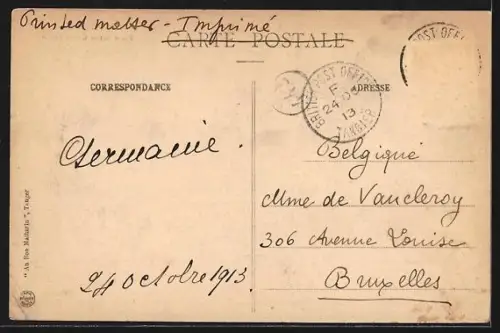 Printed matter - Imprimé
CARTE POSTALE
POST OFFI
CORRESPONDANCE
ADRESSE
BRITISH POST OFFICE
F
24 OC
13
TANGIER
Germaine.
Belgique
Mme de Vaucleroy
306 Avenue Louise
Bruxelles
24 Octobre 1913
"Au Bon Marché", Tanger